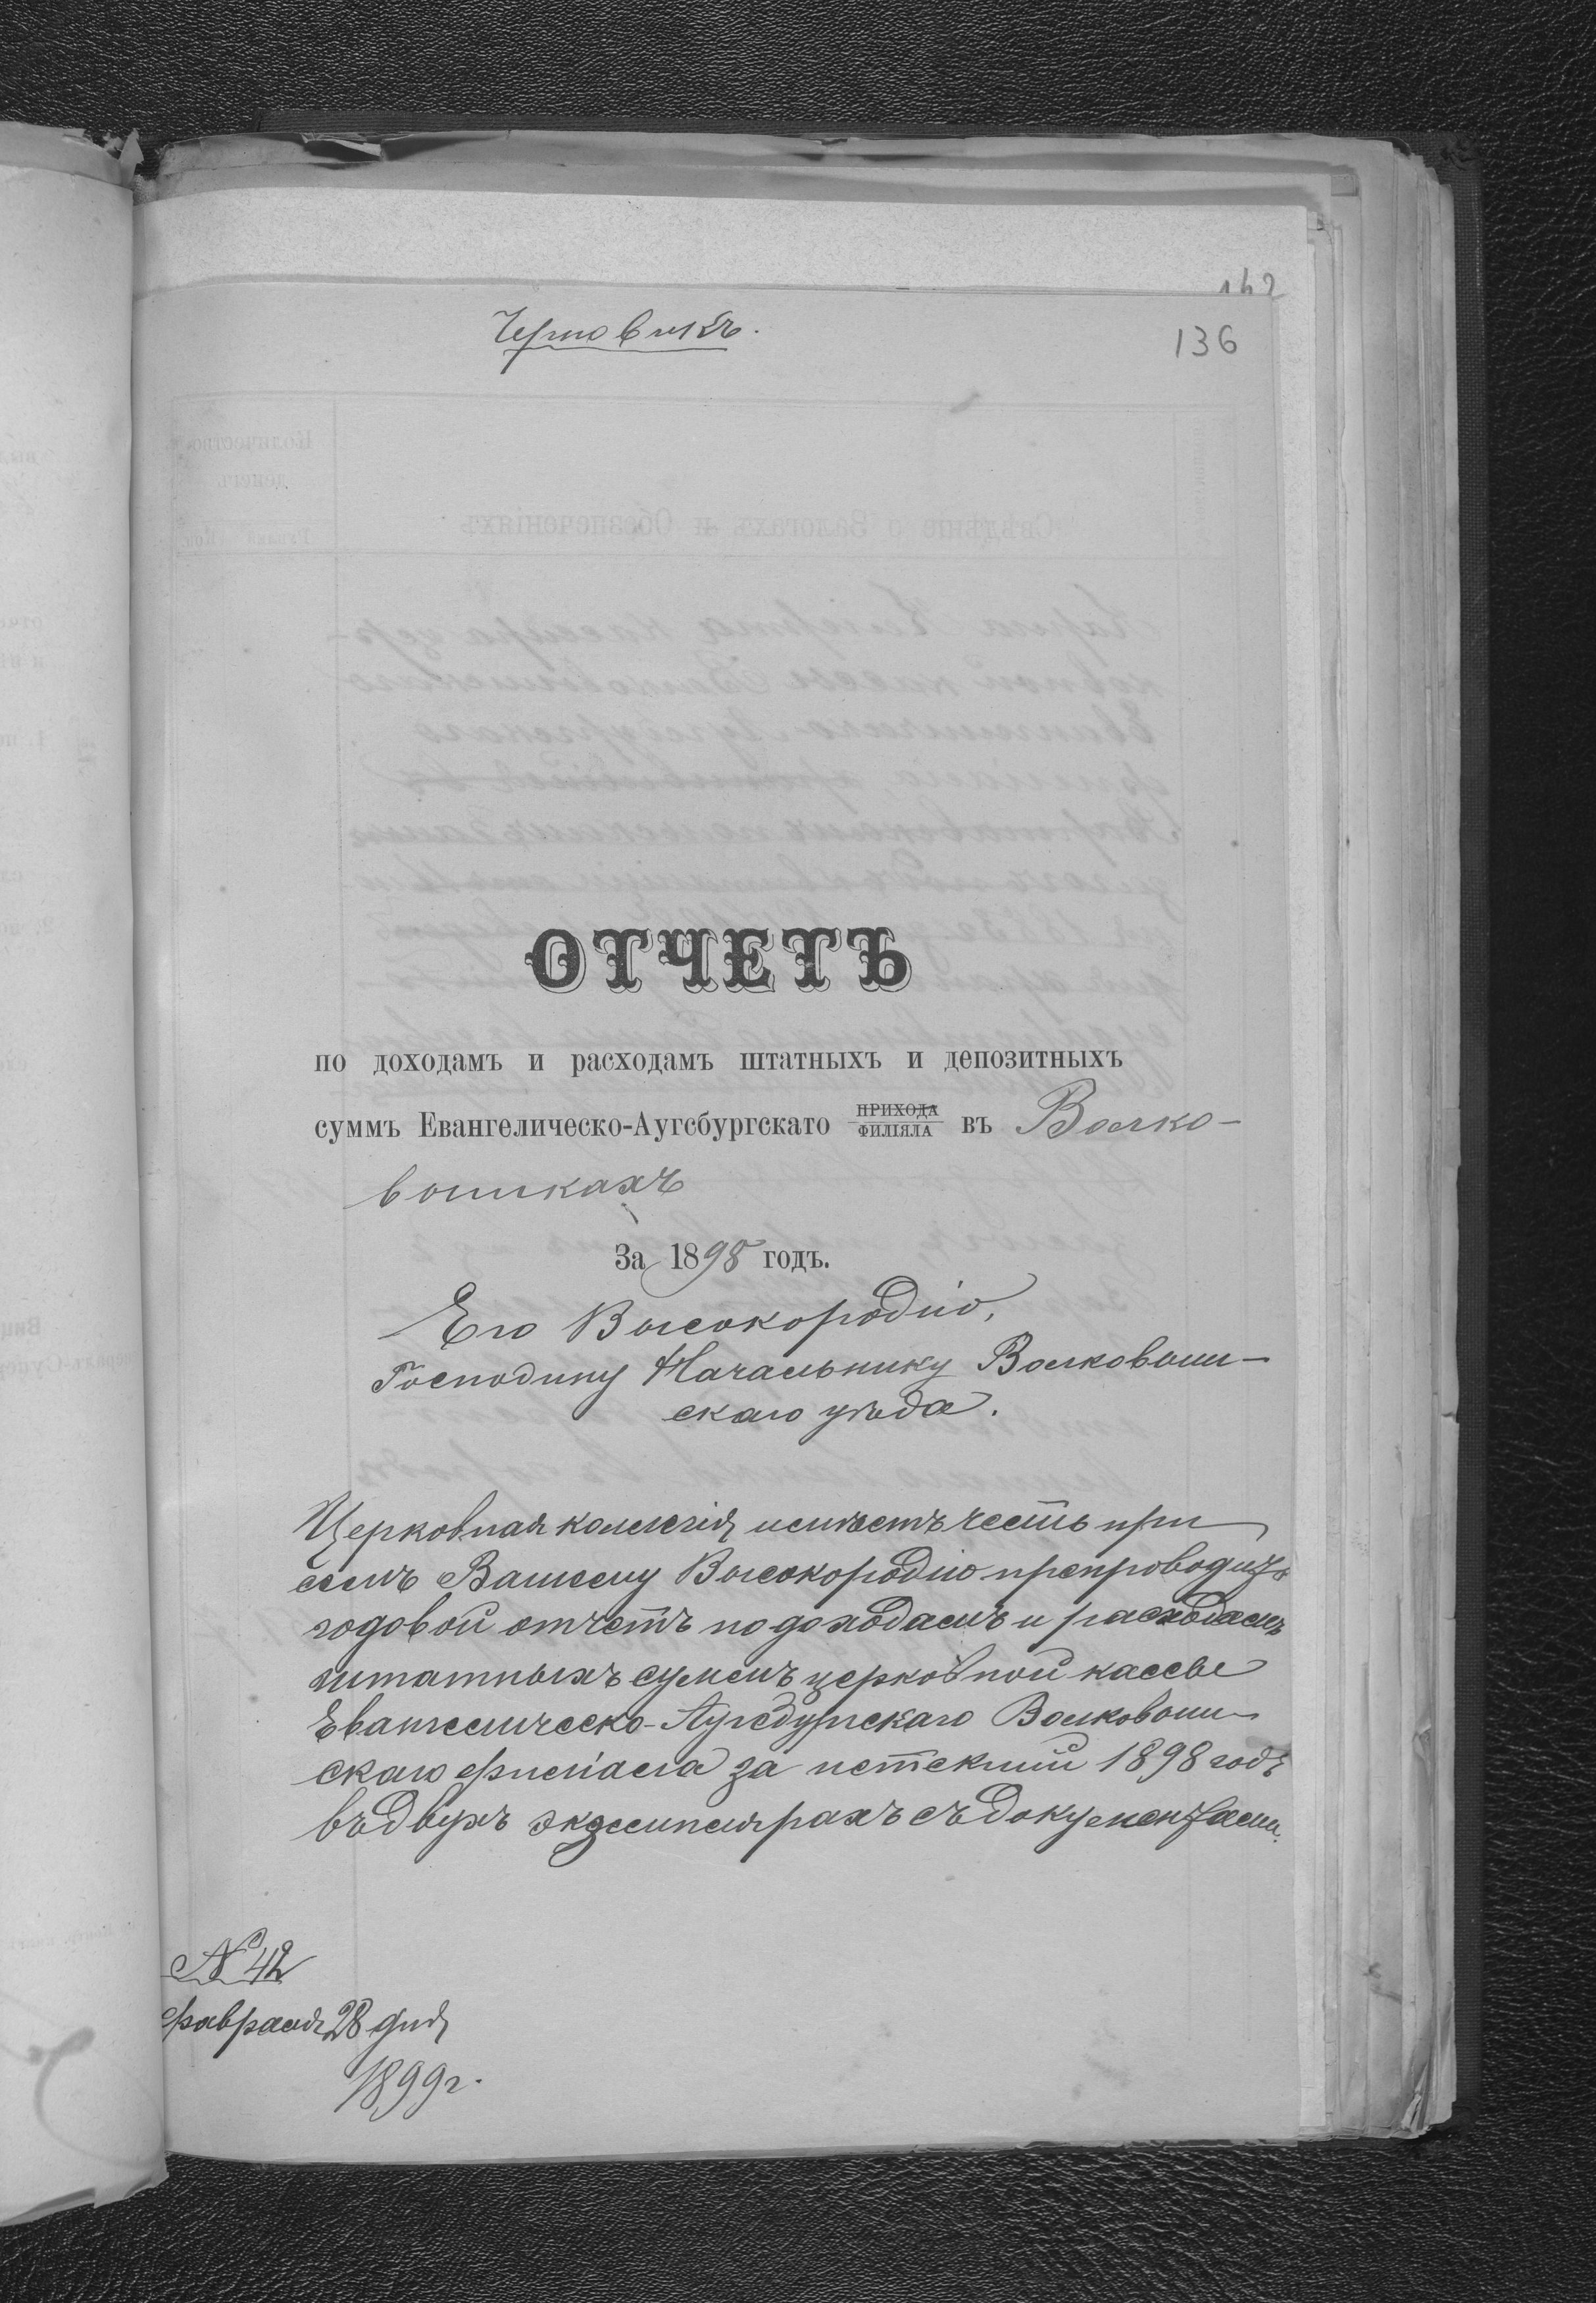 142
Черновикъ.
136
ОТЧЕТЪ
по доходамъ и расходамъ штатныхъ и депозитныхъ
суммъ Евангелическо-Аугсбургскато ПРИХОДА ФИЛІЯЛА въ Волко-
вышкахъ
За 1898 годъ.
Его Высокородію,
Господину Начальнику Волковыш-
скаго уѣзда.
Церковная коллегія имѣетъ честь при
семъ Вашему Высокородію препроводить
годовой отчетъ по доходамъ и расходамъ
штатныхъ суммъ церковной кассы
Евангелическо-Аугсбургскаго Волковыш-
скаго филіала за истекшій 1898 годъ
въ двухъ экземплярахъ съ документами.
№ 42
февраля 28 дня
1899 г.